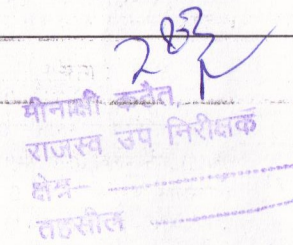 मीनाक्षी
राजस्व उप निरीक्षक
क्षेत्र
तहसील